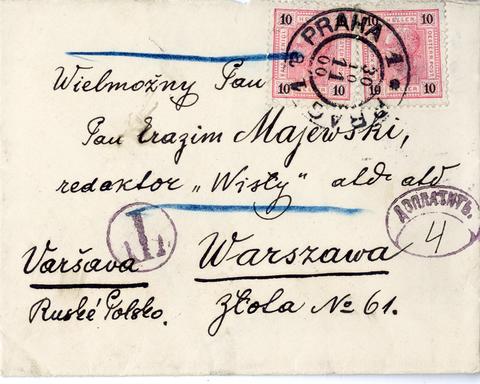 10 10
10 10 10 10
PRAHA 1
30
10
11
00
Wielmożny Pan
Pan Erazim Majewski,
redaktor „Wisły" atd atd
ДОПЛАТИТЬ.
4
T
Varšava
Warszawa
Ruské Polsko.
Złota № 61.